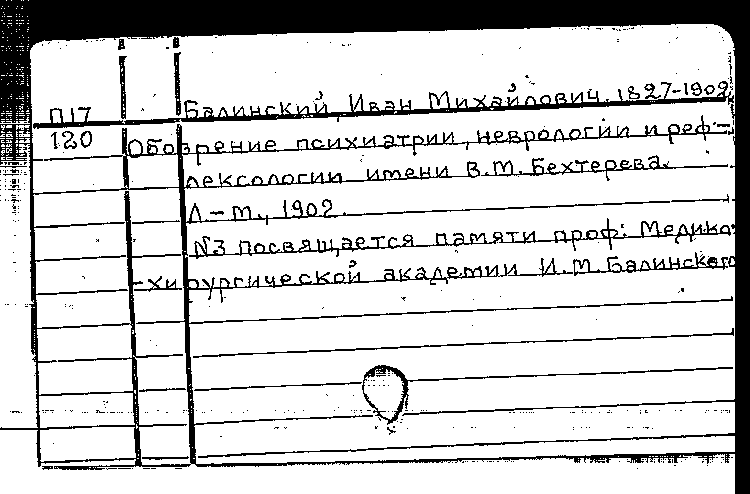 П17 Балинский, Иван Михайлович, 1827-1902
120 Обозрение психиатрии, неврологии и реф-
лексологии имени В.М. Бехтерева.
Л-м., 1902.
N3 посвящается памяти проф: Медико-
-хирургической академии И.М. Балинского